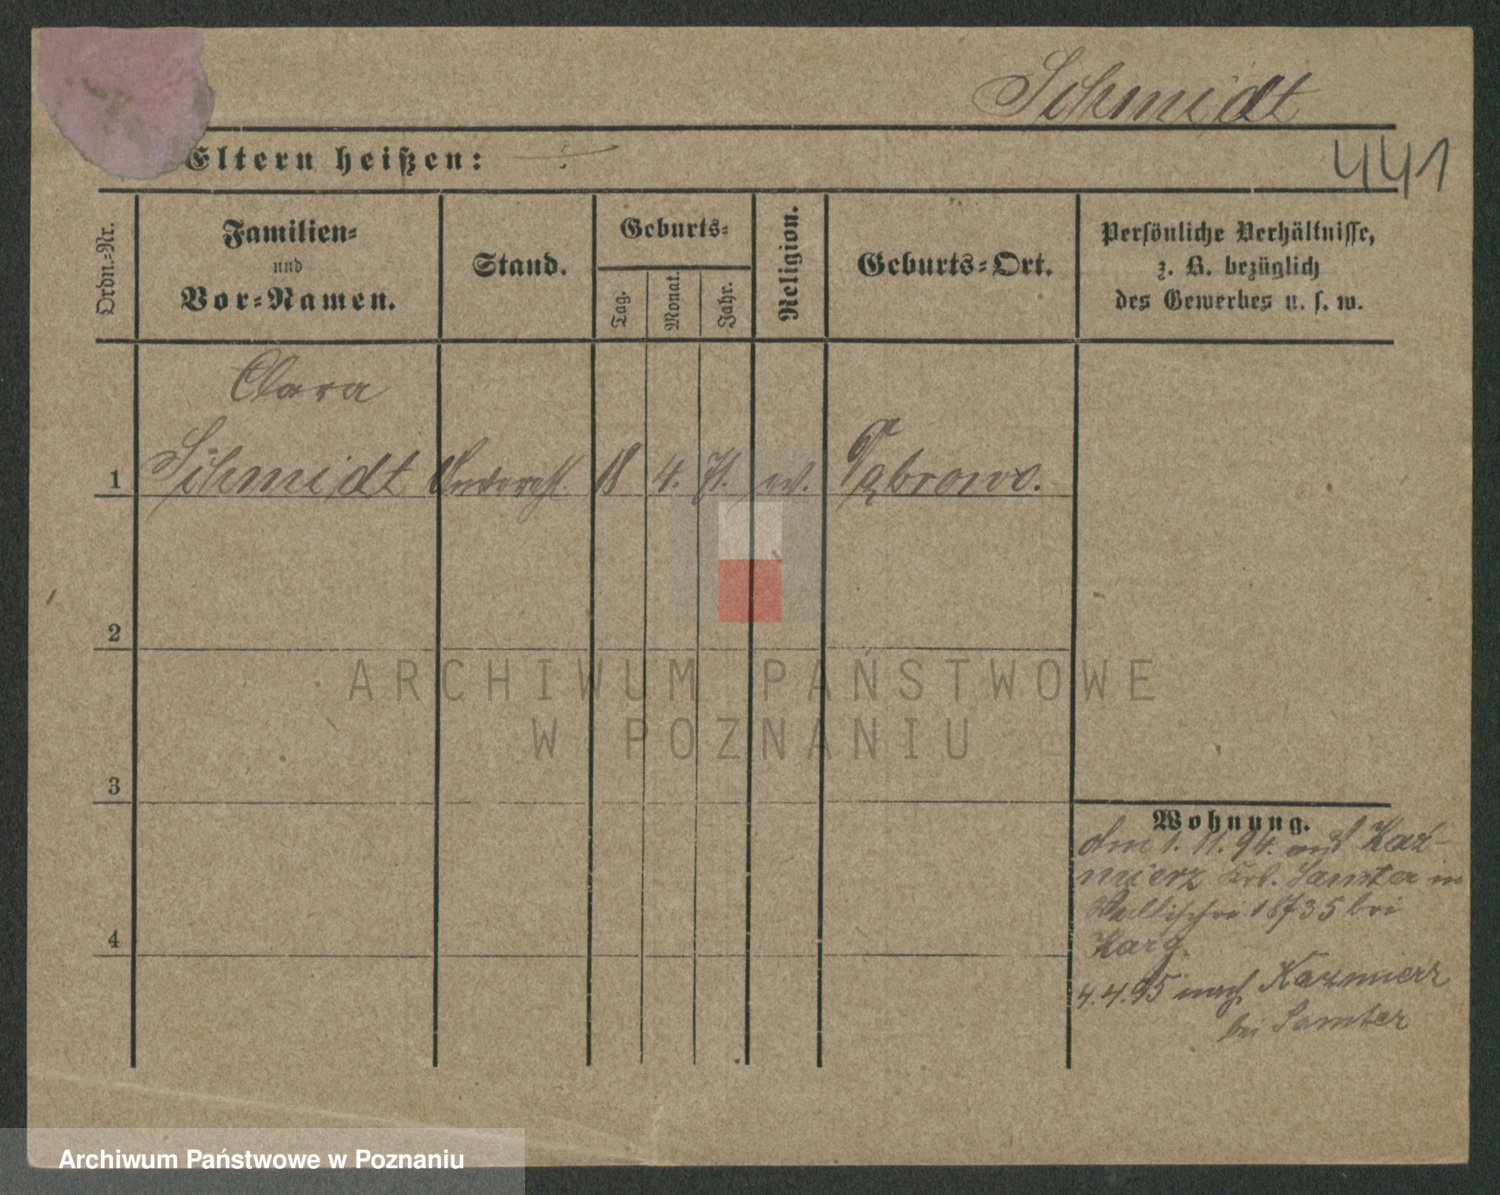 Schmidt
441
Eltern heißen:
Ordn.-Nr.
Familien-
und
Vor-Namen.
Stand.
Geburts-
Tag.
Monat.
Jahr.
Religion.
Geburts-Ort.
Persönliche Verhältnisse,
z. B. bezüglich
des Gewerbes u. s. w.
Clara
1 Schmidt 18 4. ev.
2
3
4
Wohnung.
1. 11. 94. Kaz-
mierz Krb. Samter in
Wallischei 1873 5 bei
Karg.
4.4.95 nach Kazmierz
bei Samter
ARCHIWUM PAŃSTWOWE
W POZNANIU
Archiwum Państwowe w Poznaniu